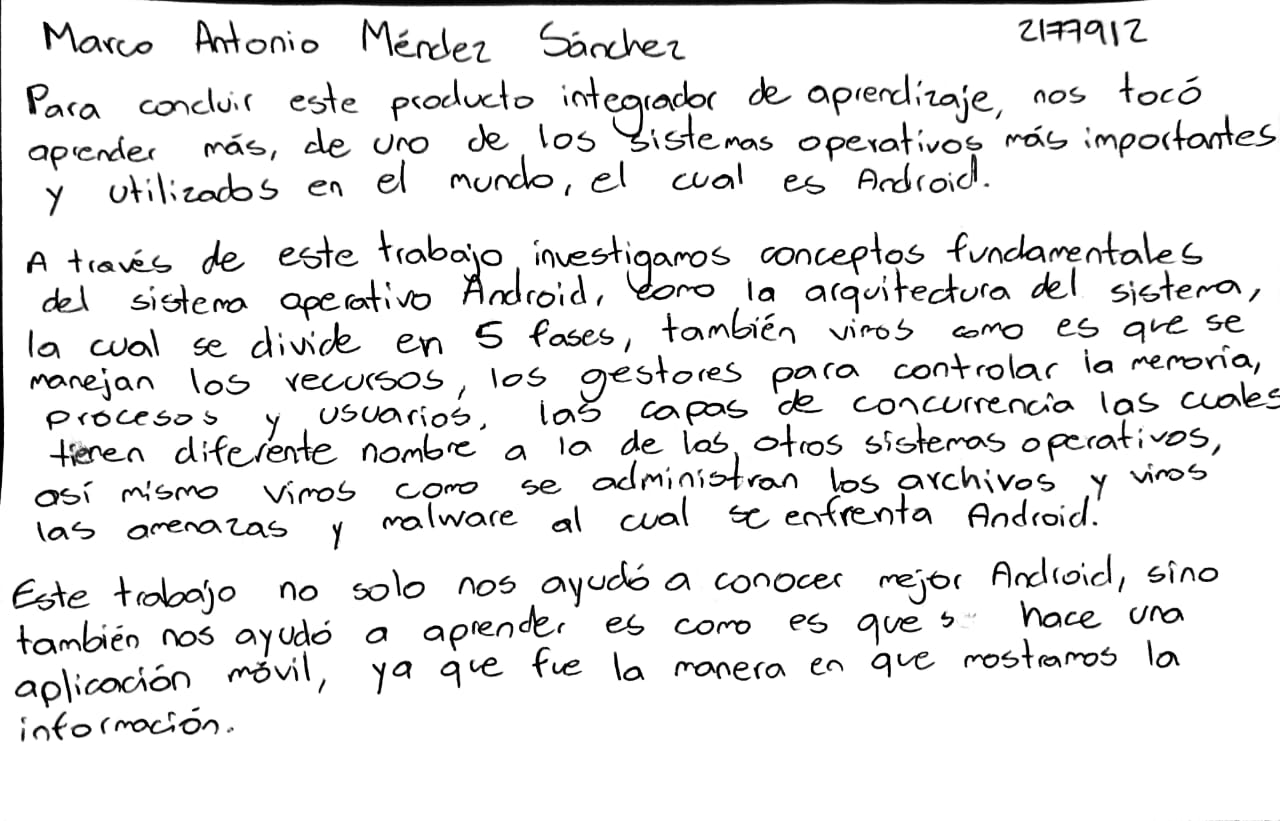 Marco Antonio Méndez Sánchez 2177912
Para concluir este producto integrador de aprendizaje, nos tocó
aprender más, de uno de los sistemas operativos más importantes
y utilizados en el mundo, el cual es Android.
A través de este trabajo investigamos conceptos fundamentales
del sistema operativo Android, como la arquitectura del sistema,
la cual se divide en 5 fases, también vimos como es que se
manejan los recursos, los gestores para controlar la memoria,
procesos y usuarios, las capas de concurrencia las cuales
tienen diferente nombre a la de los otros sistemas operativos,
así mismo vimos como se administran los archivos y vimos
las amenazas y malware al cual se enfrenta Android.
Este trabajo no solo nos ayudó a conocer mejor Android, sino
también nos ayudó a aprender es como es que s hace una
aplicación móvil, ya que fue la manera en que mostramos la
información.